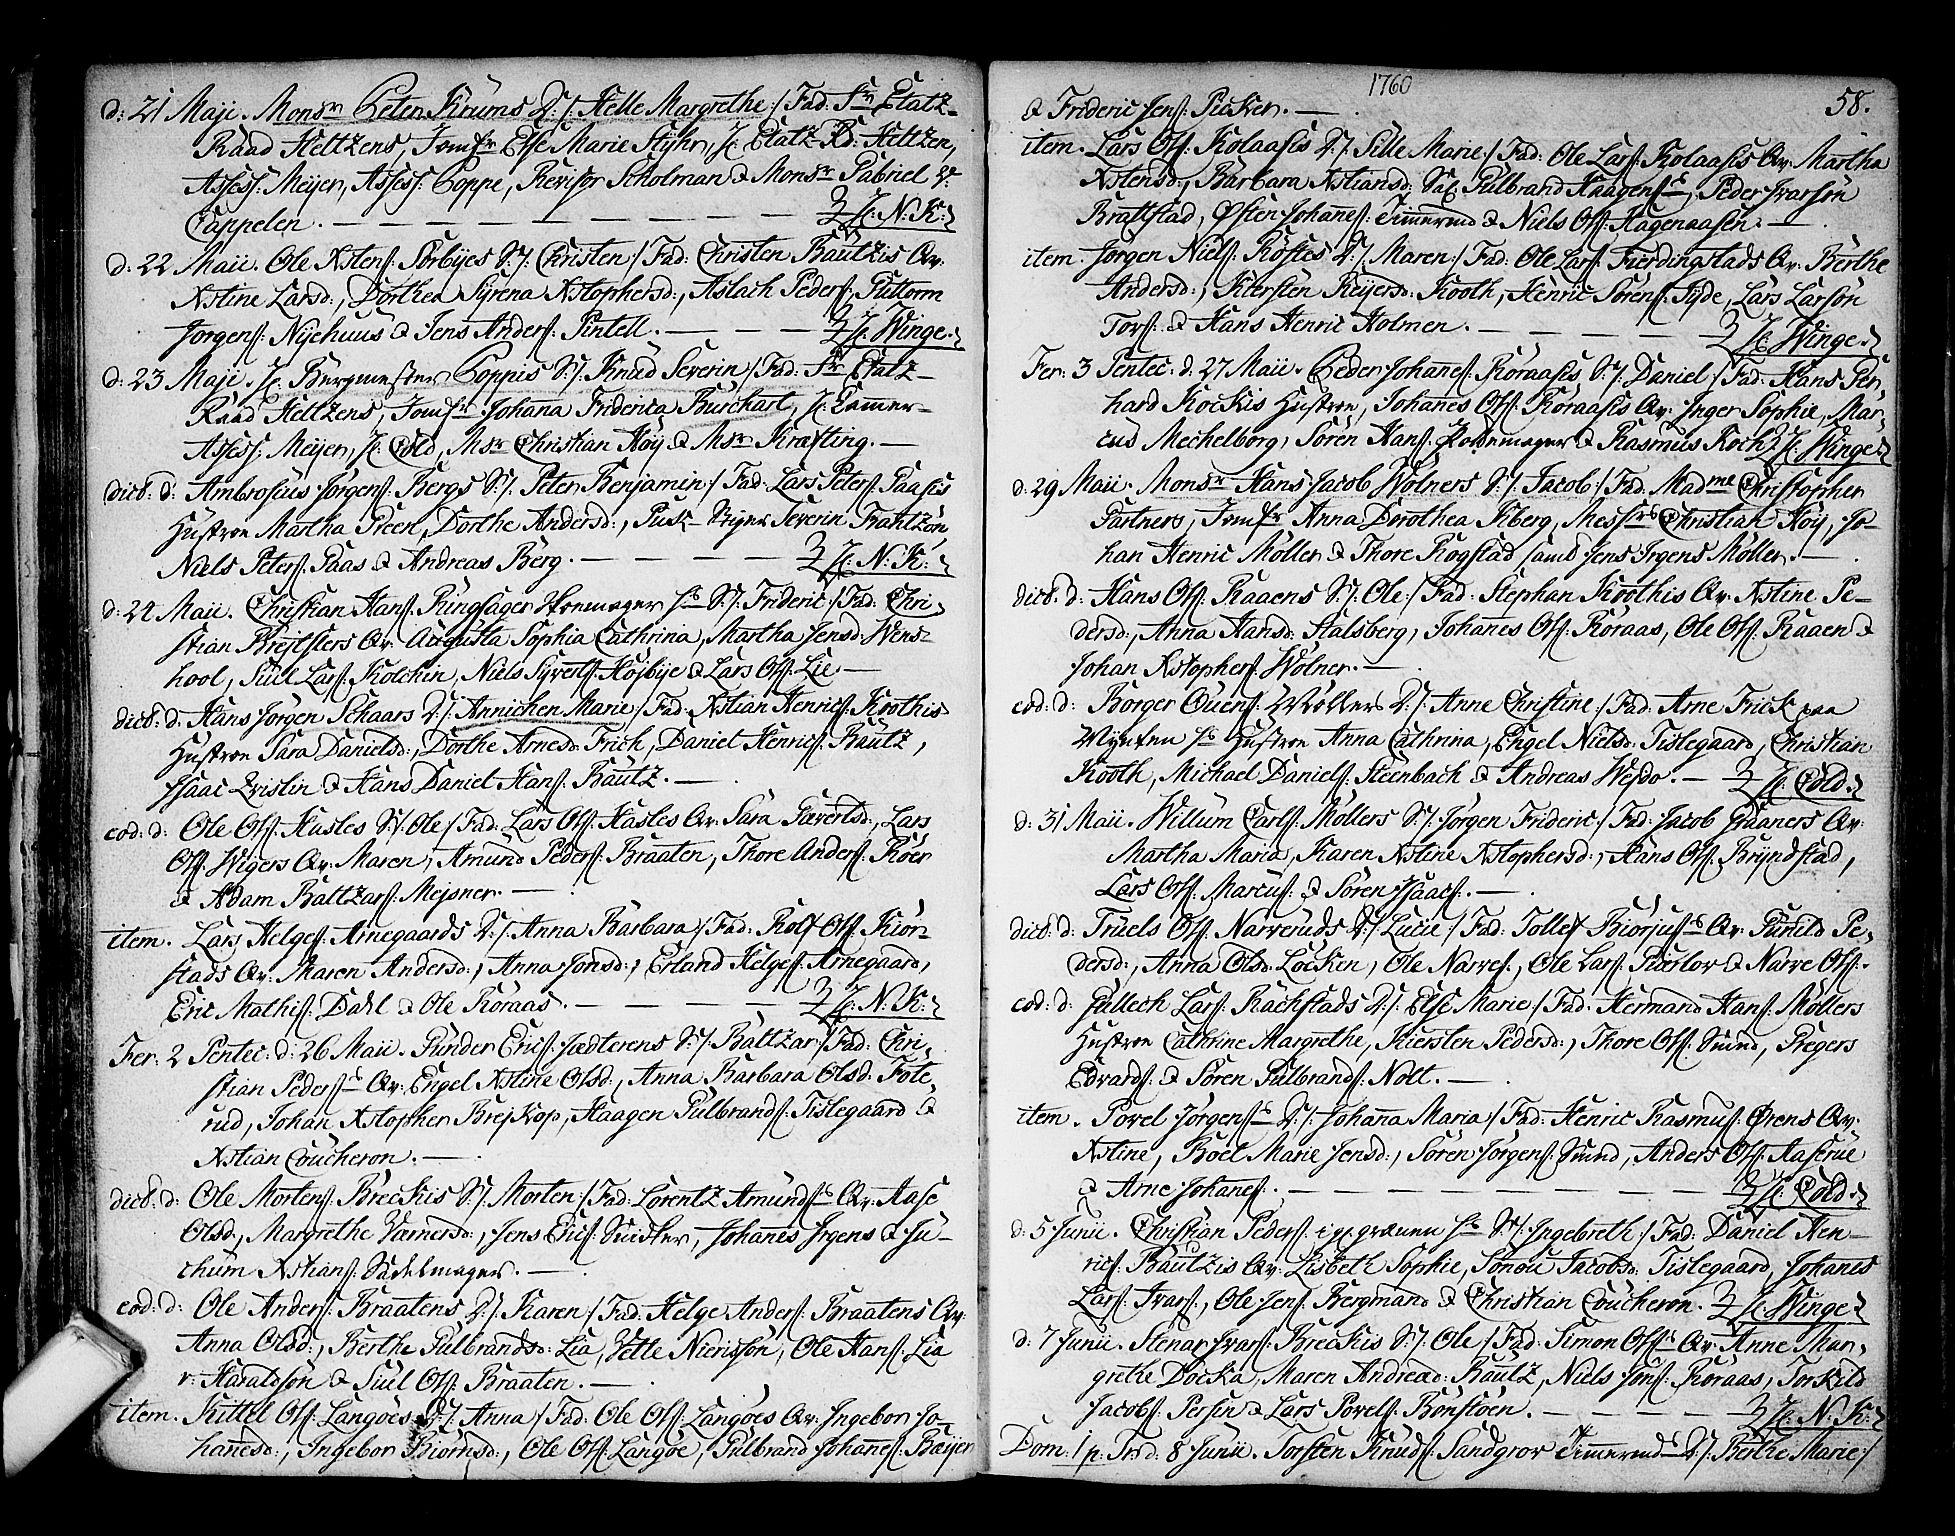 d: 21 Maji. Monsr Peter Krums D:/: Helle Margrethe:/ Fad: Hr Etatz-
Raad Heltzens, Jomfr Else Marie Styhr, H: Etatz R: Heltzen,
Assess: Meyer, Assess: Coppe, Revisor Scholman & Monsr Gabriel V:
Cappelen. H: N: K:
d: 22 Maii. Ole Xstens: Sörbÿes S:/: Christen:/ Fad: Christen Bautzis Qv:
Xstine Larsd:, Dorthea Syrena Xstophersd:, Aslach Peders: Guttorm
Jörgens: Nÿehuus & Jens Anders: Pintell. H: Winge.
d: 23 Maji. H: Burgmester Coppis S:/: Knud Severin:/ Fad: Hr Etatz-
Raad Heltzens, Jomfr Johana Friderica Burchart, H: Cammer-
Assess: Meyer, H: Cold, Msr Christian Höy & Msr Kræfting.
dict: d: Ambrosius Jörgens: Bergs S:/: Peter Benjamin:/ Fad: Lars Peters: Paasis
Hustroe Martha Green, Dorthe Andersd:, Severin Frantzön
Niels Peters: Paas & Andreas Berg. H: N: K:
d: 24 Maii. Christian Hans: Ringsager S:/: Frideric:/ Fad: Chri-
stian Qv: Augusta Sophia Cathrina, Martha Jensd: Wens-
hool, Siul Lars: Kolchin, Niels Syverts: Höjbÿe & Lars Ols: Lie.
dict: d: Hans Jörgen Schaars D:/: Annichen Marie:/ Fad: Xstian Henrics: Koothis
Hustroe Sara Danielsd:, Dorthe Arnesd: Frich, Daniel Henrics: Bautz,
Isaac Qvistin & Hans Daniel Hans: Bautz.
eod: d: Ole Ols: Hasles S:/: Ole:/ Fad: Lars Ols: Hasles Qv: Sara Sævertsd:, Lars
Ols: Wigers Qv: Maren, Amund Peders: Braaten, Thore Anders: Röer
& Adam Baltzars: Mejsner.
item. Lars Helges: Arnegaards D:/: Anna Barbara:/ Fad: Rolf Ols: Kior-
stads Qv: Maren Andersd:, Anna Jonsd:, Erland Helges: Arnegaard,
Eric Mathis: Dahl & Ole Röraas. H: N: K:
Fer: 2 Pentec: d: 26 Maii. Gunder Erics: Jædterens S:/: Baltzar:/ Fad: Chri-
stian Peders: Qv: Engel Xstine Olsd:, Anna Barbara Olsd: Fote-
rud, Johan Xstopher Brejkop, Haagen Gulbrands: Tislegaard &
Xstian Coucheron.
dict: d: Ole Mortens: Breckis S:/: Morten:/ Fad: Lorentz Amunds: Qv: Aase
Olsd:, Margrethe Værnersd:, Jens Erics: Snidker, Johanes Jrgens & Jo-
chum Xstians: Sadelmager.
eod: d: Ole Anders: Braatens D:/: Karen:/ Fad: Helge Anders: Braatens Qv:
Anna Olsd:, Berthe Gulbrandsd: Lia, Vetle Nierisön, Ole Hans: Lia
v: Haraldsön & Siul Ols: Braaten.
item. Kittel Ols: Langöes D:/: Anna:/ Fad: Ole Ols: Langöes Qv: Ingebor Jo-
hanesd:, Ingebor Biörnsd:, Ole Ols: Langöe, Gulbrand Johanes: Bæyer
1760
58.
& Frideric Jens: Picker.
item. Lars Ols: Kolaasis D:/: Sille Marie:/ Fad: Ole Lars: Kolaasis Qv: Martha
Xstensd:, Barbara Xstiansd: Gulbrand Haagens:, Peder Ivarsön
Brattstad, Östen Johanes: Timermd & Niels Ols: Hagenaasen.
item. Jörgen Niels: Röstes D:/: Maren:/ Fad: Ole Lars: Fierdingstads Qv: Berthe
Andersd:, Kiersten Reyersd: Kooth, Henric Sörens: Syde, Lars Larsön
Tors: & Hans Henric Holmen. H: Winge.
Fer: 3 Pentec: d: 27 Maii. Peder Johanes: Röraasis S:/: Daniel:/ Fad: Hans Ger-
hard Kockis Hustroe, Johanes Ols: Röraasis Qv: Inger Sophie, Mar-
cus Mechelborg, Sören Hans: & Rasmus Koch. H: Winge.
d: 29 Maii. Monsr Hans Jacob Wölners S:/: Jacob:/ Fad: Madme Christopher
Gartners, Jomfr Anna Dorothea Fiberg, Messrs Christian Höy, Jo-
han Henric Möller & Thore Rogstad samt Jens Jrgens Möller.
dict: d: Hans Ols: Kaaens S:/: Ole:/ Fad: Stephan Koothis Qv: Xstine Pe-
dersd:, Anna Hansd: Stalsberg, Johanes Ols: Röraas, Ole Ols: Kaaen &
Johan Xstophers: Wölner.
eod: d: Börger Ouens: Möllers D:/: Anne Christine:/ Fad: Arne Frick paa
Mynten Hustroe Anna Cathrina, Engel Nielsd: Tislegaard, Christian
Kooth, Michael Daniels: Steenbach & Andreas Wesdo. H: Cold.
d: 31 Maii. Willum Carls: Möllers S:/: Jörgen Frideric:/ Fad: Jacob Graaners Qv:
Martha Maria, Karen Xstine Xstophersd:, Hans Ols: Bryndstad,
Lars Ols: Marcus: & Sören Isaacs:.
dict: d: Truels Ols: Narveruds D:/: Lucie:/ Fad: Tollef Qv: Gunild Pe-
dersd:, Anna Olsd: Löcken, Ole Narves:, Ole Lars: & Narve Ols:.
eod: d: Gullech Lars: Rachstads D:/: Else Marie:/ Fad: Hermand Hans: Möllers
Hustroe Cathrine Margrethe, Kiersten Pedersd:, Thore Ols: Smed, Gregers
Edvards: & Sören Gulbrands: Nolt.
item. Povel Jörgens: D:/: Johana Maria:/ Fad: Henric Rasmus: Örens Qv:
Xstine, Boel Marie Jensd:, Sören Jörgens: Smed, Anders Ols: Aaserue
& Arne Johanes:. H: Cold.
d: 5 Junii. Christian Peders: S:/: Ingebreth:/ Fad: Daniel Hen-
rics: Bautzis Qv: Lisbeth Sophie, Jacobsd: Tislegaard, Johanes
Lars: Ivars:, Ole Jens: Bergmand & Christian Coucheron. H: Winge.
d: 7 Junii. Stenar Ivars: Breckis S:/: Ole:/ Fad: Simon Ols: Qv: Anne Mar-
grethe Docka, Maren Andread: Bautz, Niels Jons: Röraas, Torkild
Jacobs: Persen & Lars Povels: Bonstöen. H: N: K:
Dom: 1 p: Trd: 8 Junii. Torsten Knuds: Sandgrov Timermds D:/: Berthe Marie:/